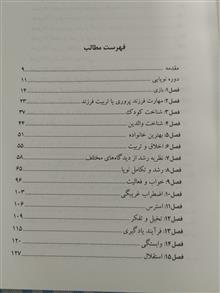 فهرست مطالب
مقدمه ۹
دوره نوپایی ۱۱
فصل۱: بازی ۱۴
فصل۲: مهارت فرزند پروری یا تربیت فرزند ۲۳
فصل۳: شناخت کودک ۳۷
فصل۴: شناخت والدین ۴۴
فصل۵: بهترین خانواده ۵۱
فصل۶: اخلاق و تربیت ۵۵
فصل۷: نظریه رشد از دیدگاه‌های مختلف ۵۸
فصل۸: رشد و تکامل نوپا ۶۵
فصل۹: خواب و فعالیت ۹۶
فصل۱۰: اضطراب غریبگی ۱۰۳
فصل۱۱: استرس ۱۰۶
فصل۱۲: تخیل و تفکر ۱۰۹
فصل۱۳: فرآیند یادگیری ۱۱۵
فصل۱۴: وابستگی ۱۲۰
فصل۱۵: استقلال ۱۲۷